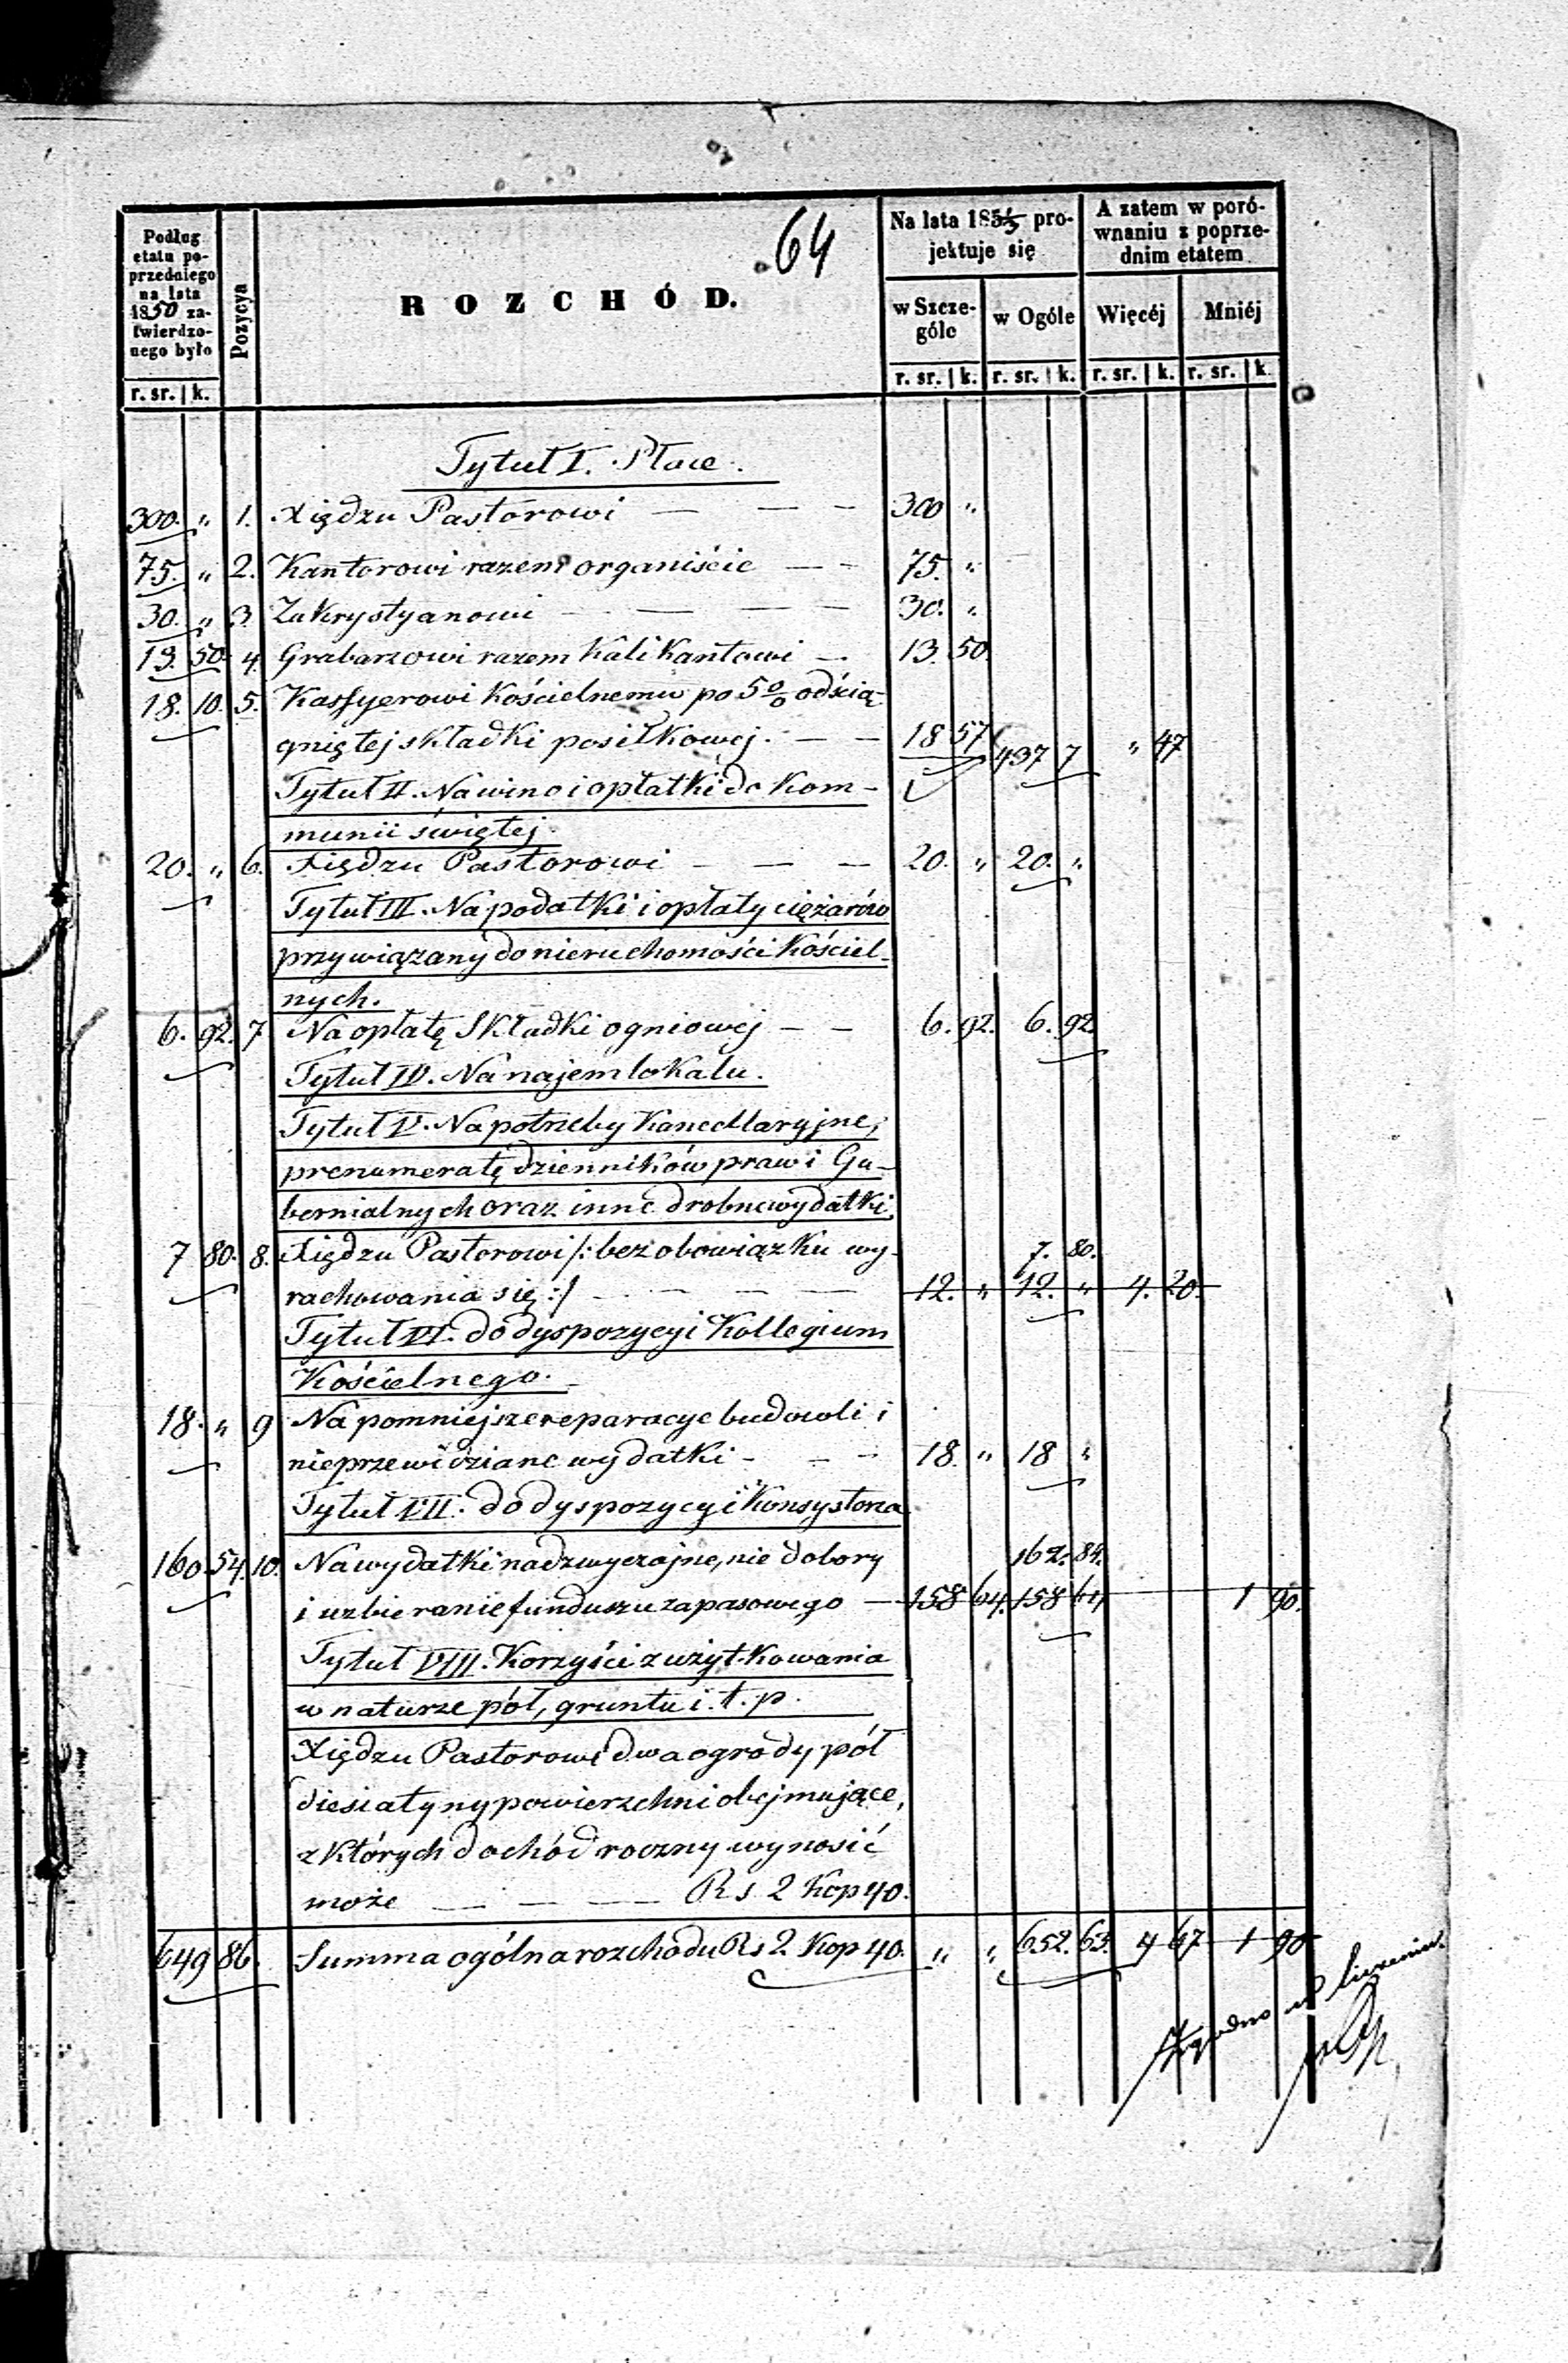 64
Podług etatu poprzedniego na lata 1850 zatwierdzonego było
Pozycya
ROZCHÓD.
Na lata 185 projektuje się
A zatem w porównaniu z poprzednim etatem
w Szczególe | w Ogóle | Więcéj | Mniéj
r. sr. | k. | r. sr. | k. | r. sr. | k. | r. sr. | k. | r. sr. | k.
Tytuł I. Płace.
300. " 1. Xiędzu Pastorowi — — — 300 "
75. " 2. Kantorowi razem organiście — — 75. "
30. " 3. Zakrystyanowi — — — — 30. "
13. 50. 4. Grabarzowi razem Kalikantowi — 13. 50.
18. 10. 5. Kassyerowi Kościelnemu po 5% odścią-
gniętej składki posiłkowej. — — 18 57 437 7 " 47
Tytuł II. Na wino i opłatki do Kom-
munii świętej.
20. " 6. Xiędzu Pastorowi — — — 20. " 20. "
Tytuł III. Na podatki i opłaty ciężarów
przywiązany do nieruchomości Kościel-
nych.
6. 92. 7 Na opłatę Składki ogniowej — — 6. 92. 6. 92.
Tytuł IV. Na najem lokalu.
Tytuł V. Na potrzeby Kancellaryjne,
prenumeratę dzienników praw i Gu-
bernialnych oraz inne drobne wydatki.
7 80. 8. Xiędzu Pastorowi /: bez obowiązku wy- 7. 80.
rachowania się :/ — — — — 12. " 12. " 4. 20.
Tytuł VI. do dyspozycyi Kollegium
Kościelnego.
18. " 9 Na pomniejsze reparacye budowli i
nieprzewidziane wydatki - - - 18. " 18 "
Tytuł VII. do dyspozycyi Konsystorza
160. 54. 10. Na wydatki nadzwyczajne, nie dobory 162. 84.
i uzbieranie funduszu zapasowego — 158 64. 158 64 1 90.
Tytuł VIII. Korzyści z użytkowania
w naturze pól, gruntu i. t. p.
Xiędzu Pastorowi dwa ogrody pół
diesiatyny powierzchni obejmujące,
z których dochód roczny wynosić
może — — — Rs 2 Kop 40.
649 86. Summa ogólna rozchodu Rs 2 Kop 40. " " 652. 63. 4 67 1 90
Zgodno w liczeniu.